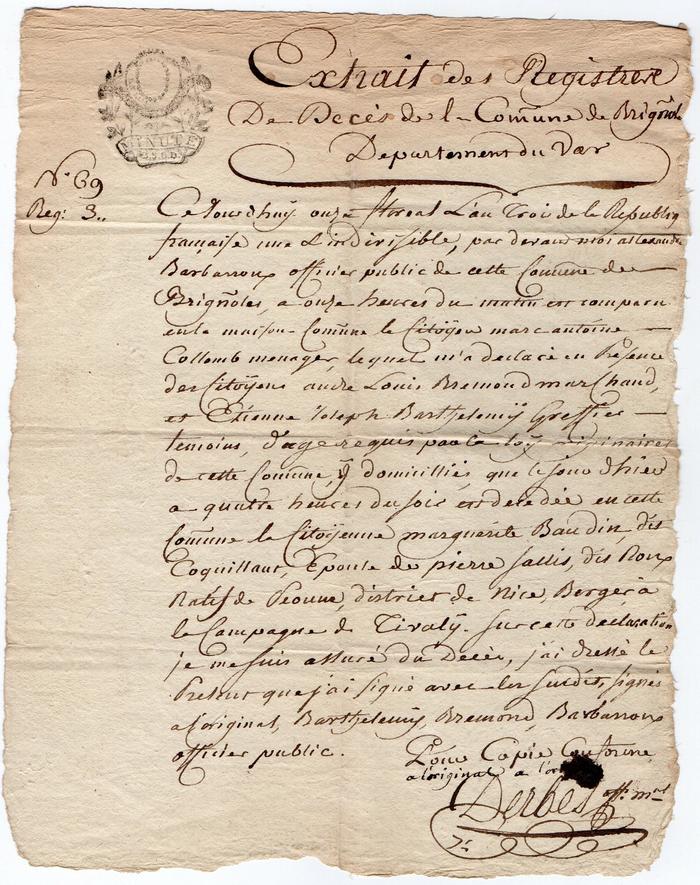 Extrait des Registres
De Decés de la Comune de Brignole
Departement du Var
MINUTE
N.º 69
Reg: 3..
Ce Jourdhuy onze floreal L'an Trois de la Republiq
française une & indivisible, par devant moi alexandre
Barbarroux officier public de cette Comune de
Brignoles, a onze heures du matin est comparu
en la maison Comune le Citoÿen marc antoine
Collomb menager, lequel m'a declaré en Présence
des Citoÿens andre Louis Bremond marchand,
et Etienne Joseph Barthelemÿ Greffier
temoins, d'age requis par la loÿ originaires
de cette Comune, ÿ domicilliés, que le jour d'hier
a quatre heures du soir est decedée en cette
Comune la Citoÿenne marguerite Baudin, dit
Coquillant, Epouse de pierre Sallis, dit Roux
Natif de Peoune, district de Nice, Berger à
la Campagne de Tivalÿ. sur cette declaration
je me suis assuré du Decés, j'ai dressé le
Present que j'ai signé avec les susdits, signés
a l'original, Barthelemÿ, Bremond, Barbarroux
officier public.
Pour Copie Conforme
a l'original a l'ori
Derbes off. m.al